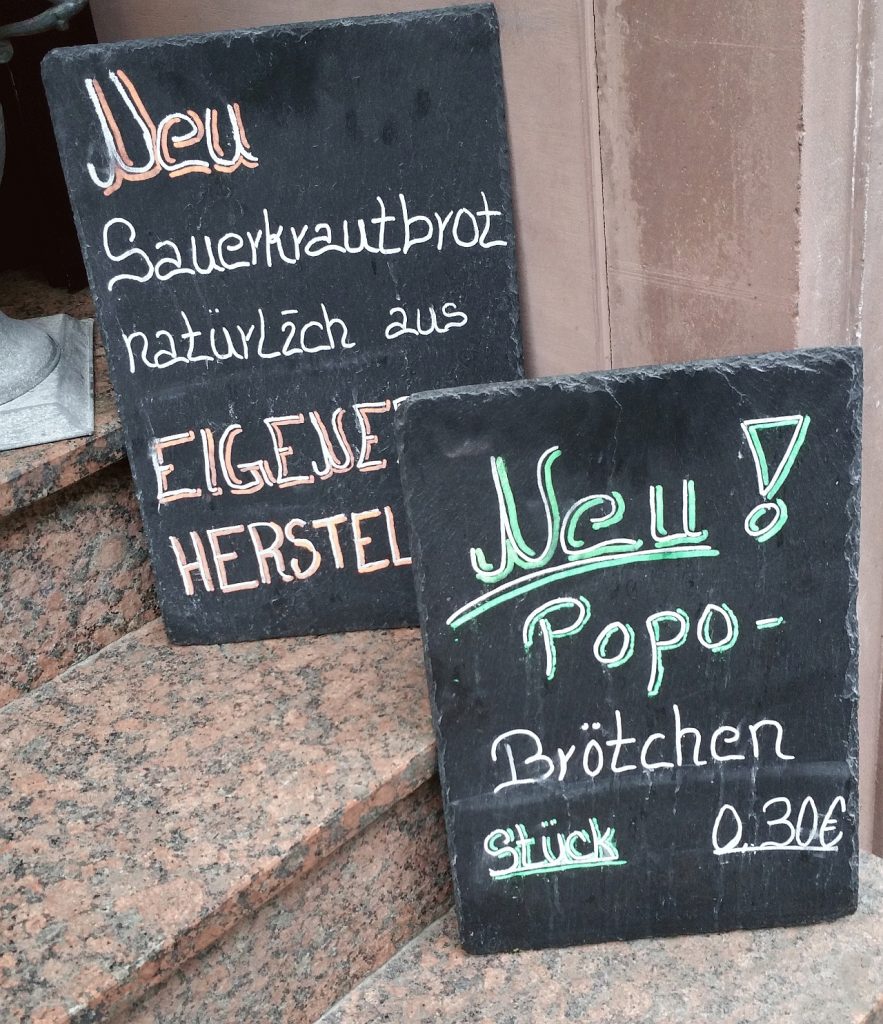 Neu
Sauerkrautbrot
natürlich aus
EIGENE
HERSTEL
Neu!
Popo-
Brötchen
Stück 0,30€